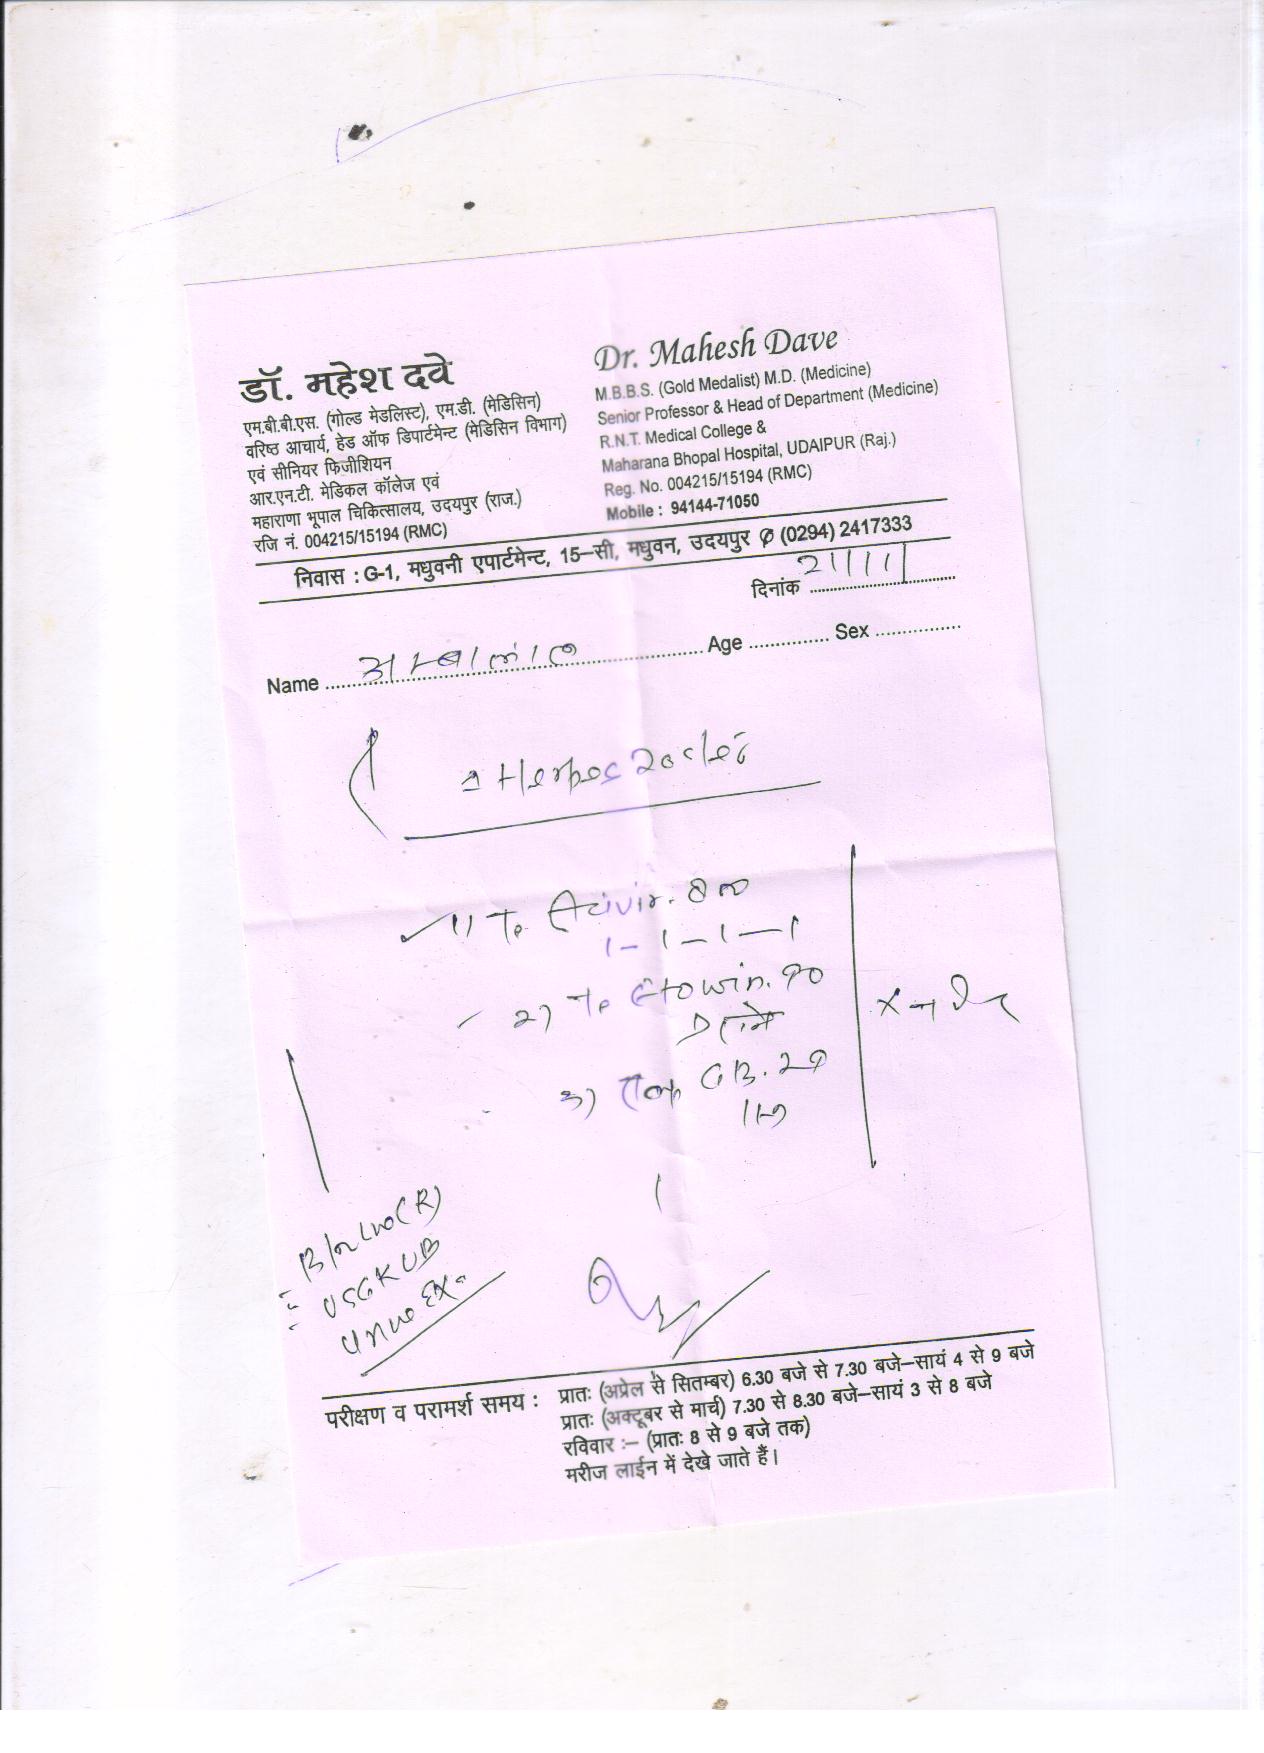 डॉ. महेश दवे
एम.बी.बी.एस. (गोल्ड मेडलिस्ट), एम.डी. (मेडिसिन)
वरिष्ठ आचार्य, हेड ऑफ डिपार्टमेन्ट (मेडिसिन विभाग)
एवं सीनियर फिजीशियन
आर.एन.टी. मेडिकल कॉलेज एवं
महाराणा भूपाल चिकित्सालय, उदयपुर (राज.)
रजि नं. 004215/15194 (RMC)
Dr. Mahesh Dave
M.B.B.S. (Gold Medalist) M.D. (Medicine)
Senior Professor & Head of Department (Medicine)
R.N.T. Medical College &
Maharana Bhopal Hospital, UDAIPUR (Raj.)
Reg. No. 004215/15194 (RMC)
Mobile : 94144-71050
निवास : G-1, मधुवनी एपार्टमेन्ट, 15–सी, मधुवन, उदयपुर ✆ (0294) 2417333
दिनांक
Name Age Sex
Herpes
1) Acivir. 800
1 – 1 – 1 – 1
2) Etowin. 90
3) GB. 29
USG KUB
परीक्षण व परामर्श समय : प्रातः (अप्रेल से सितम्बर) 6.30 बजे से 7.30 बजे–सायं 4 से 9 बजे
प्रातः (अक्टूबर से मार्च) 7.30 से 8.30 बजे–सायं 3 से 8 बजे
रविवार :– (प्रातः 8 से 9 बजे तक)
मरीज लाईन में देखे जाते हैं।